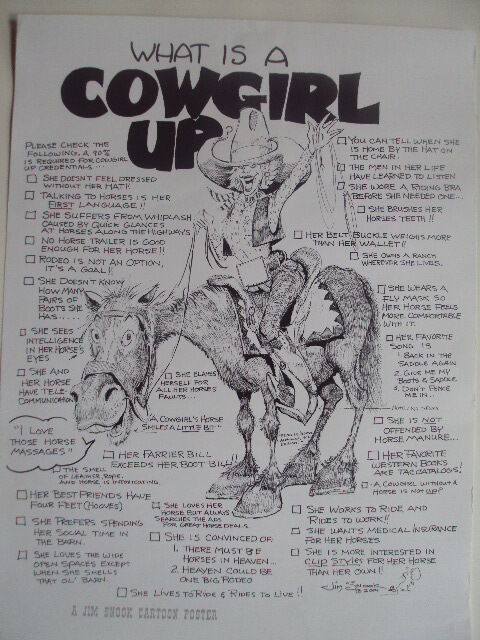 WHAT IS A
COWGIRL
UP
PLEASE CHECK THE
FOLLOWING. A 90%
IS REQUIRED FOR COWGIRL
UP CREDENTIALS...
SHE DOESN'T FEEL DRESSED
WITHOUT HER HAT!!
TALKING TO HORSES IS HER
FIRST LANGUAGE!!
SHE SUFFERS FROM WHIPLASH
CAUSED BY QUICK GLANCES
AT HORSES ALONG THE HIGHWAYS
NO HORSE TRAILER IS GOOD
ENOUGH FOR HER HORSE!!
RODEO IS NOT AN OPTION,
IT'S A GOAL!!
SHE DOESN'T KNOW
HOW MANY
PAIRS OF
BOOTS SHE
HAS...
SHE SEES
INTELLIGENCE
IN HER HORSE'S
EYES
SHE AND
HER HORSE
HAVE TELE-
COMMUNICATION
"I LOVE
THOSE HORSE
MASSAGES"
SHE BLAMES
HERSELF FOR
ALL HER HORSES
FAULTS...
A COWGIRL'S HORSE
SMILES A LITTLE BIT"
HER FARRIER BILL
EXCEEDS HER BOOT BILL!!
THE SMELL
OF LEATHER, ROPE,
AND HORSE IS INTOXICATING.
HER BEST FRIENDS HAVE
FOUR FEET (HOOVES)
SHE PREFERS SPENDING
HER SOCIAL TIME IN
THE BARN.
SHE LOVES THE WIDE
OPEN SPACES EXCEPT
WHEN SHE SMELLS
THAT OL' BARN.
SHE LOVES HER
HORSE BUT ALWAYS
SEARCHES THE ADS
FOR GREAT HORSE DEALS.
SHE IS CONVINCED OF:
1. THERE MUST BE
HORSES IN HEAVEN...
2. HEAVEN COULD BE
ONE BIG RODEO
SHE LIVES TO RIDE & RIDES TO LIVE!!
YOU CAN TELL WHEN SHE
IS HOME BY THE HAT ON
THE CHAIR.
THE MEN IN HER LIFE
HAVE LEARNED TO LISTEN
SHE WORE A RIDING BRA
BEFORE SHE NEEDED ONE...
SHE BRUSHES HER
HORSES TEETH!!
HER BELT BUCKLE WEIGHS MORE
THAN HER WALLET!!
SHE OWNS A RANCH
WHEREVER SHE LIVES.
SHE WEARS A
FLY MASK SO
HER HORSE FEELS
MORE COMFORTABLE
WITH IT.
HER FAVORITE
SONG IS
1. BACK IN THE
SADDLE AGAIN
2. GIVE ME MY
BOOTS & SADDLE
3. DON'T FENCE
ME IN...
SHE IS NOT
OFFENDED BY
HORSE MANURE...
HER FAVORITE
WESTERN BOOKS
ARE TACCATALOGS!
A COWGIRL WITHOUT A
HORSE IS NOT UP!
SHE WORKS TO RIDE AND
RIDES TO WORK!!
SHE WANTS MEDICAL INSURANCE
FOR HER HORSES
SHE IS MORE INTERESTED IN
CLIP STYLES FOR HER HORSE
THAN HER OWN!!
A JIM SNOOK CARTOON POSTER